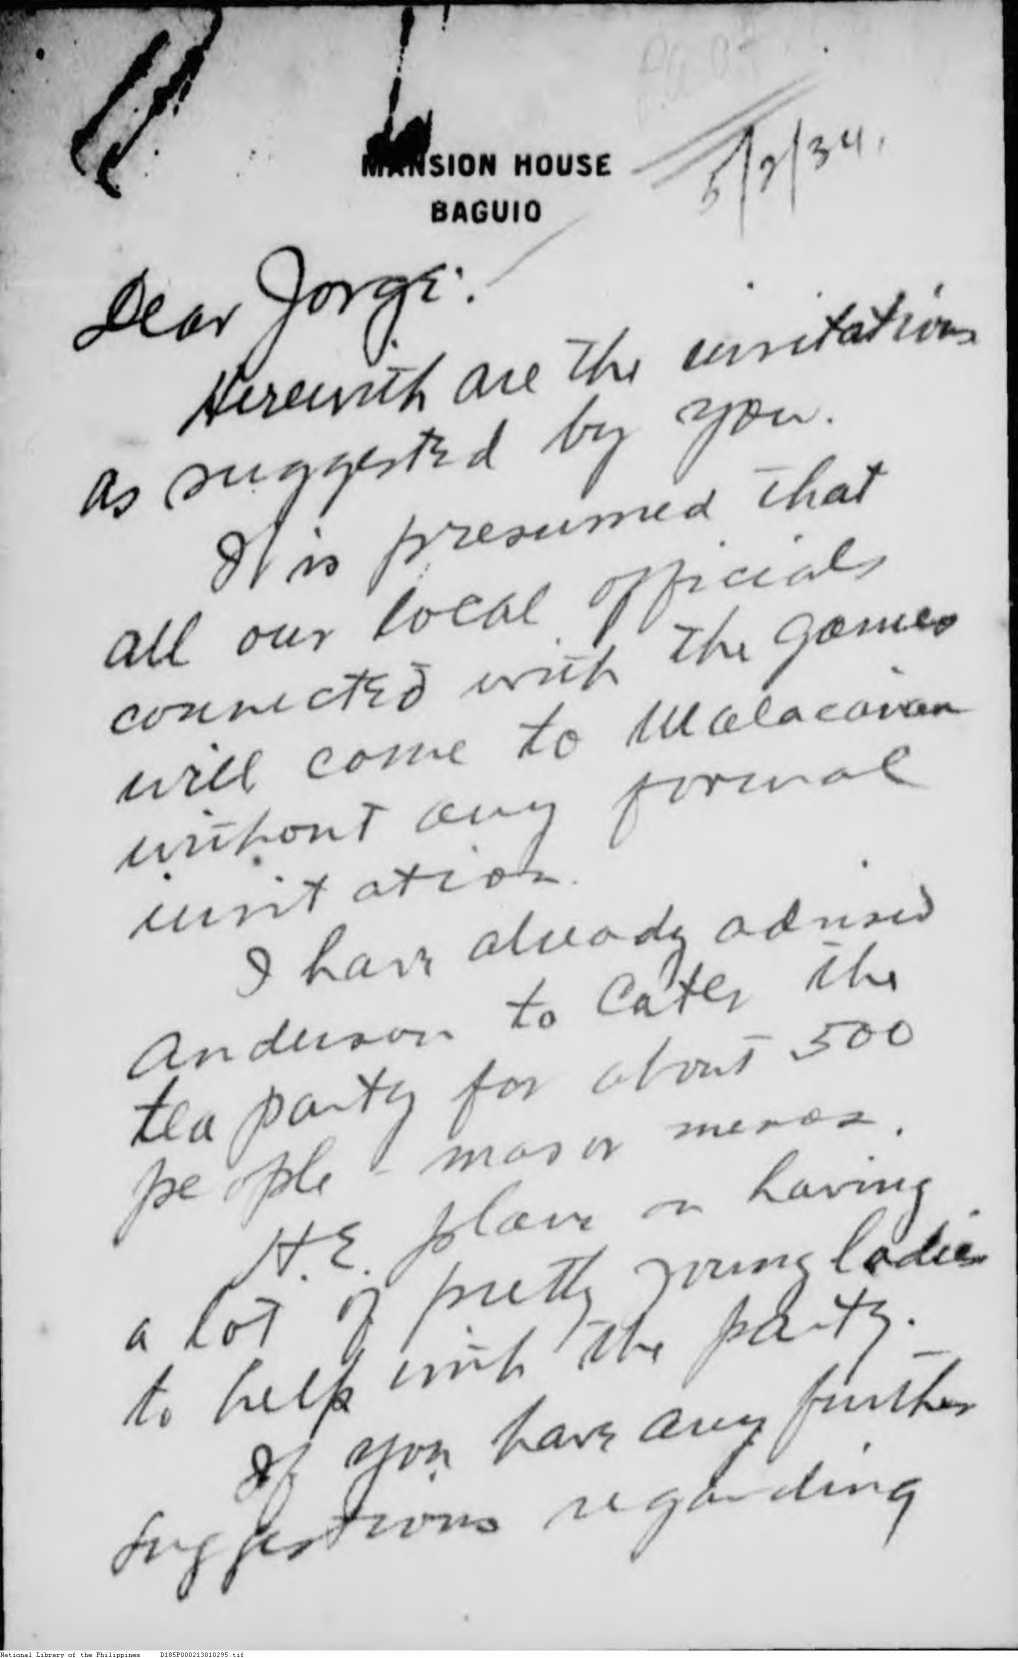 MANSION HOUSE
BAGUIO
5/2/34.
Dear Jorge:
Herewith are the invitations
as suggested by you.
It is presumed that
all our local officials
connected with the games
will come to Malacañan
without any formal
invitation.
I have already advised
Anderson to cater the
tea party for about 500
people - mas o menos.
H.E. plans on having
a lot of pretty young ladies
to help with the party.
If you have any further
suggestions regarding
National Library of the Philippines D185P000213010295.tif